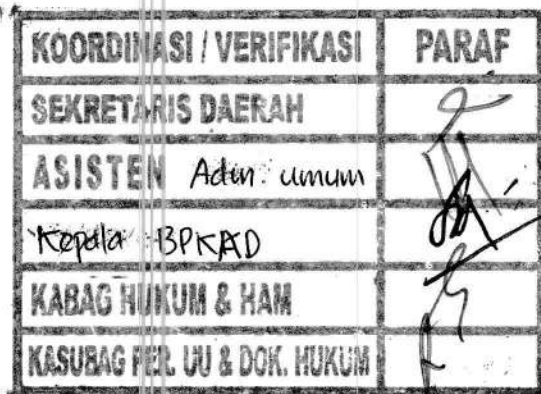 KOORDINASI / VERIFIKASI PARAF
SEKRETARIS DAERAH
ASISTEN Adm. umum
Kepala BPKAD
KABAG HUKUM & HAM
KASUBAG PER. UU & DOK. HUKUM